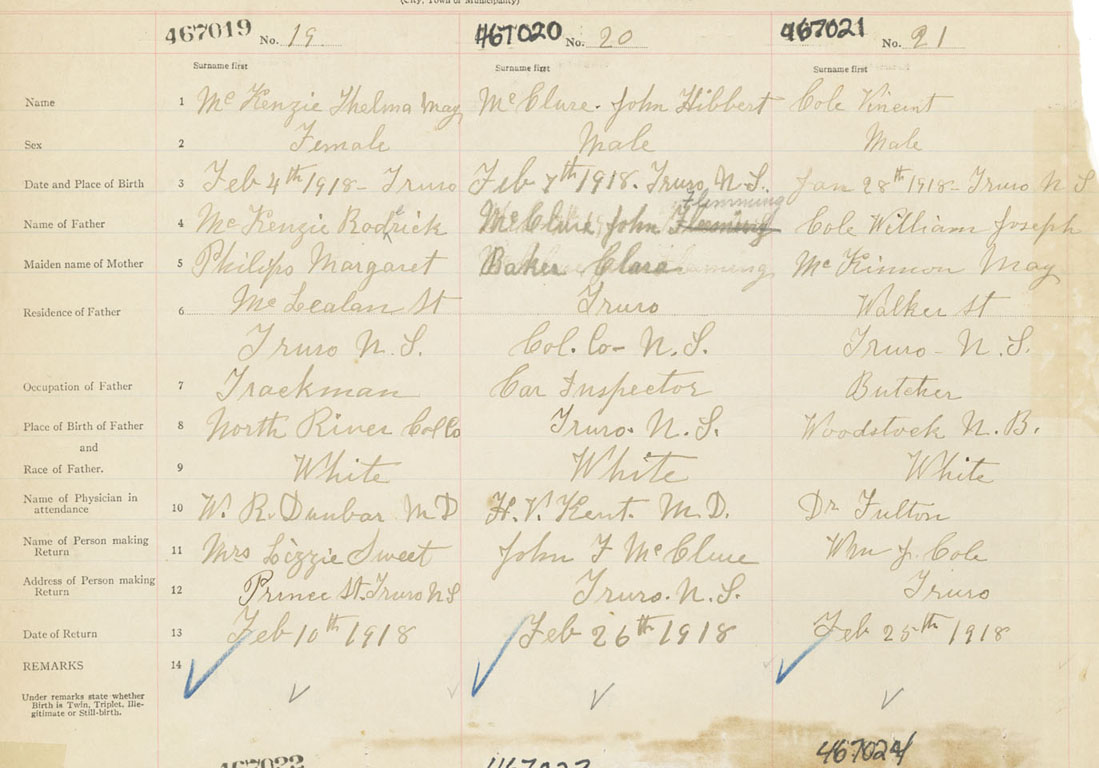 (City, Town or Municipality)
467019 No. 19 467020 No. 20 467021 No. 21
Surname first Surname first Surname first
Name 1 McKenzie Thelma May McClure. John Hibbert Cole Vincent
Sex 2 Female Male Male
Date and Place of Birth 3 Feb 4th 1918 - Truro Feb 7th 1918. Truro N.S. Jan 28th 1918 - Truro N S
Flemming
Name of Father 4 McKenzie Rodrick McClure, John Cole William Joseph
Maiden name of Mother 5 Philips Margaret Baker Clara McKinnon May
Residence of Father 6 McLealan St Truro Walker st
Truro N.S. Col. Co - N.S. Truro - N.S.
Occupation of Father 7 Trackman Car Inspector Butcher
Place of Birth of Father 8 North River Col Co Truro. N.S. Woodstock N.B.
and
Race of Father. 9 White White White
Name of Physician in
attendance 10 W. R. Dunbar M D H. V. Kent. M.D. Dr Fulton
Name of Person making
Return 11 Mrs Lizzie Sweet John F McClure Wm J. Cole
Address of Person making
Return 12 Prince St. Truro N S Truro. N.S. Truro
Date of Return 13 Feb 10th 1918 Feb 26th 1918 Feb 25th 1918
REMARKS 14
Under remarks state whether
Birth is Twin, Triplet, Ille-
gitimate or Still-birth.
467022 467023 467024